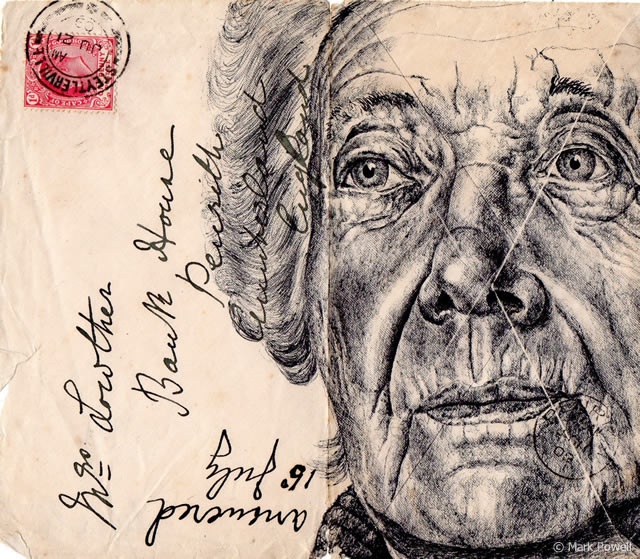 Mrs Lowther
Bank House
Penrith
Cumberland
England
answered
July
STEYTLERVILLE
AM
JU 21
CAPE OF
© Mark Powell